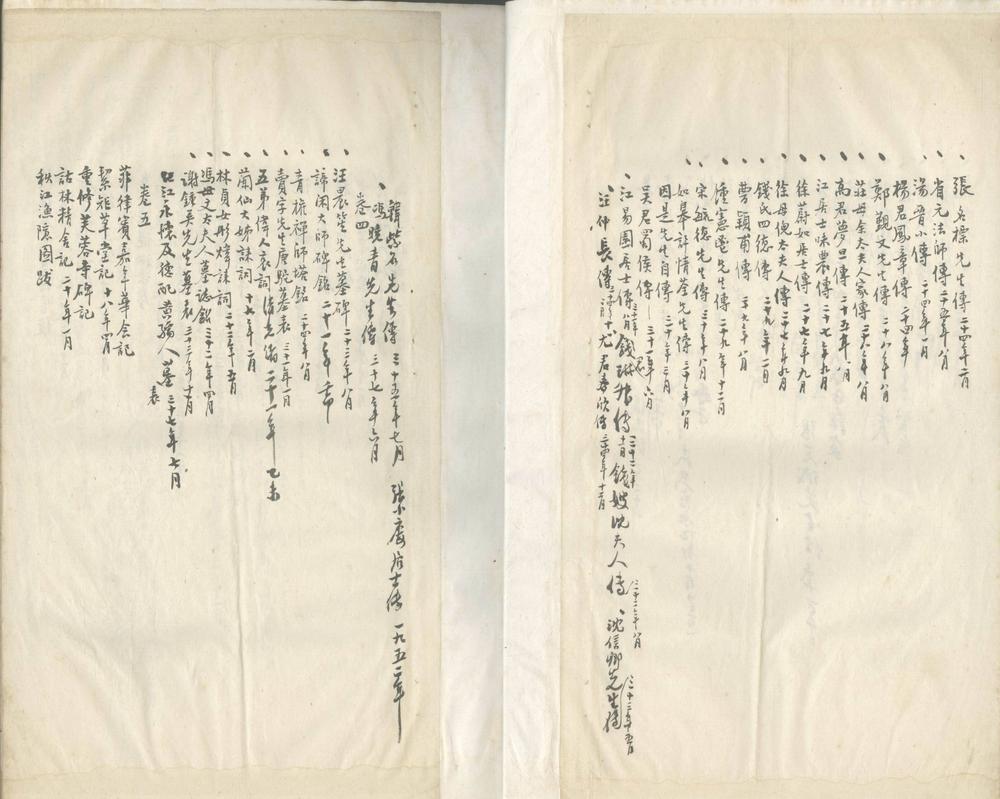 張冬標先生傳 二十四年二月
省元法師傳 二十五年八月
湯晋小傳 二十四年一月
楊君鳳章傳 二十四年
鄭覲文先生傳 二十八年八月
莊母余太夫人家傳 二十六年八月
高君夢旦傳 二十五年八月
江居士味農傳 二十七年九月
徐蔚如居士傳 二十七年九月
徐母倪太夫人傳 二十七年九月
錢氏四德傳 二十九年一月
曹穎甫傳 二十七年八月
鍾憲鬯先生傳 二十九年十二月
宋毓德先生傳 三十年八月
如皋計情荃先生傳 三十年八月
因是先生自傳 二十年三月
吳君蜀侯傳 三十一年六月
江易園居士傳 錢琳叔傳 三十二年十一月 錢嫂沈夫人傳 三十二年八月 沈信卿先生傳 三十三年五月
汪仲長傳 尤君春欣傳 三十四年十二月
韓紫石先生傳 三十五年七月 張小廔居士傳 一九五二年
馮曉青先生傳 三十七年六月
卷四
汪晨笙先生墓碑 二十三年八月
諦閑大師碑銘 二十一年
青權禪師塔銘 二十四年八月
賣字先生唐駝墓表 三十一年一月
五弟偉人哀詞 清光緒二十一年乙未
蘭仙大姊誄詞 十七年二月
林貞女彤煒誄詞 二十三年五月
馮母文太夫人墓誌銘 三十二年四月
謝鍾英先生墓表 三十三年十二月
江永搽及德配黃孺人墓表 三十七年七月
卷五
菲律賓嘉年華會記
絜矩草堂記 十八年四月
重修芙蓉寺碑記
詁林精舍記 二十年一月
秋江漁隱圖跋